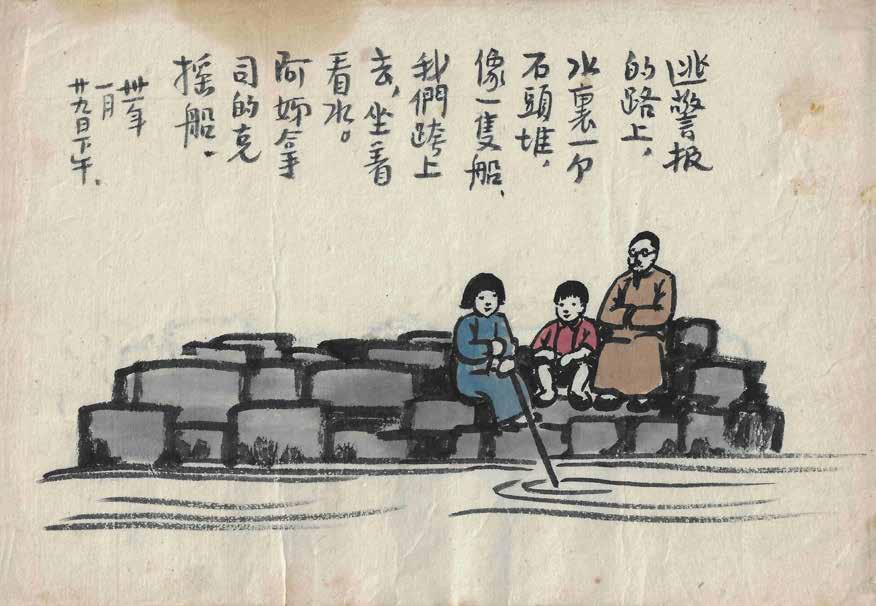 逃警报
的路上，
水裏一个
石頭堆，
像一隻船，
我們跨上
去，坐着
看水。
阿姊拿
司的克
摇船．
卅一年
一月
廿九日下午．